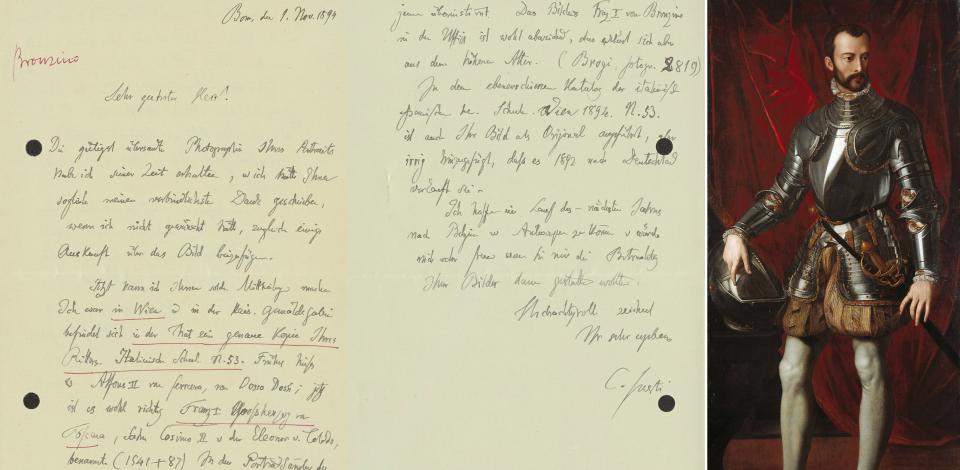 Bonn, den 1. Nov. 1894
Bronzino
Sehr geehrter Herr!
Die gütigst übersante Photographie Ihres Portraits
habe ich seiner Zeit erhalten, u ich hätte Ihnen
sogleich meinen verbindlichsten Danke geschrieben,
wenn ich nicht gewünscht hätte, zugleich einige
Auskunft über das Bild beizufügen.
Jetzt kann ich Ihnen solche Mittheilung machen
Ich war in Wien u in der Kais. Gemäldegalerie
befindet sich in der That ein genaue Kopie Ihres
Ritters. Italienische Schul N. 53. Früher hiess
es Alfons II von Ferrara, von Dosso Dossi; jetzt
ist es wohl richtig Franz I Grossherzog von
Toscana, Sohn Cosimo II u der Eleonor v. Toledo,
benannt (1541 + 87) In der Porträtsamlg des
jenen übereinstimmt. Das Bildnis Franz I von Bronzino
in den Uffizi ist wohl abweichend, das erklärt sich aber
aus dem höheren Alter. (Brogi, fotogr. 2819)
In dem ebenerschienenen Katalog der italienisch
spanischen Schule Wien 1894. N. 53.
ist auch Ihr Bild als Original angeführt, aber
irrig hinzugefügt, daß es 1892 nach Deutschland
verkauft sei.
Ich hoffe im Lauf des nächsten Jahres
nach Belgien u Antwerpen zu komen u würde
mich sehr freuen wenn Sie mir die Betrachtg
Ihrer Bilder dann gestatten wollten.
Hochachtungsvoll zeichnet
Ihr sehr ergebener
C. Justi